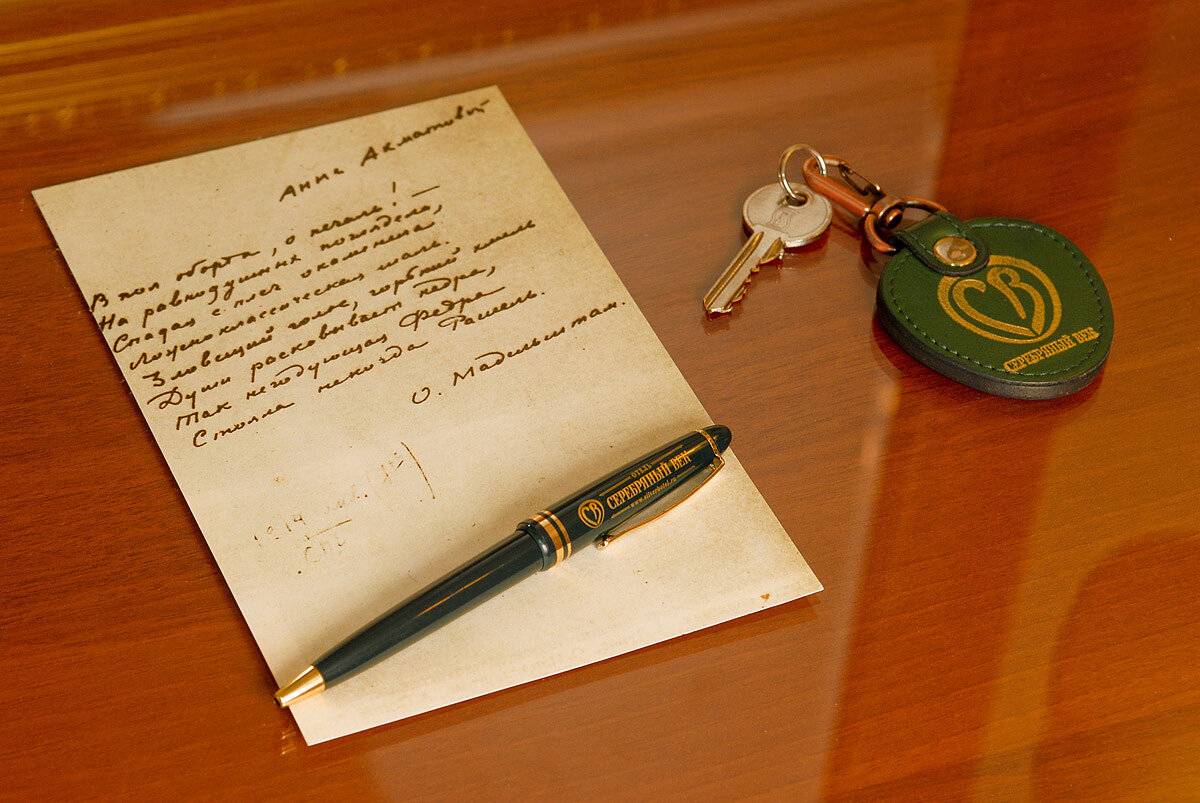 Анна Ахматовой
В пол оборота, о печаль! —
На равнодушных поглядела,
Спадая с плеч окаменела
Ложноклассическая шаль.
Зловещий голос, горький хмель
Души расковывает недра,
Так негодующая Федра
Стояла некогда Рашель.
О. Мандельштам.
1914
СПБ
ОТЕЛЬ
СЕРЕБРЯНЫЙ ВЕК
СВ
СВ
СЕРЕБРЯНЫЙ ВЕК